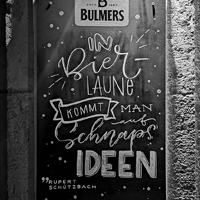 B
BULMERS
IN
Bier-
LAUNE
KOMMT MAN
auf
Schnaps
IDEEN
"RUPERT
SCHÜTZBACH